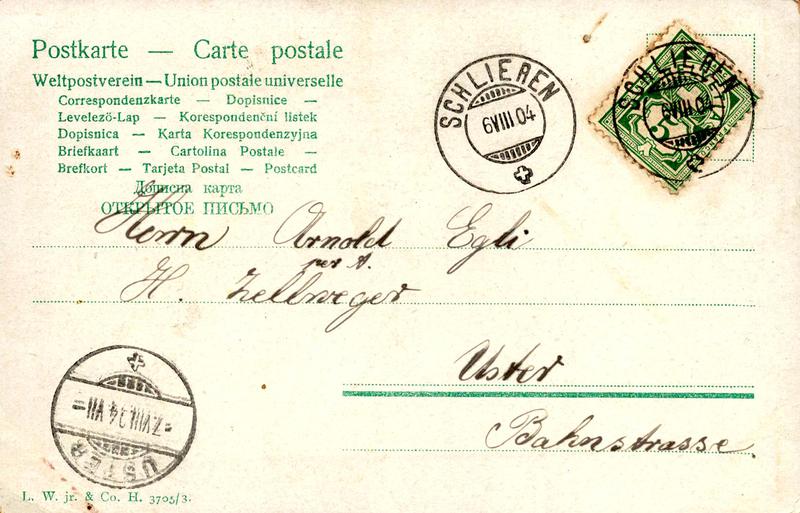 Postkarte — Carte postale
Weltpostverein — Union postale universelle
Correspondenzkarte — Dopisnice —
Levelező-Lap — Korespondenční listek
Dopisnica — Karta Korespondenzyjna
Briefkaart — Cartolina Postale —
Brefkort — Tarjeta Postal — Postcard
Дописна карта
ОТКРЫТОЕ ПИСЬМО
SCHLIEREN
6VIII 04
SCHLIEREN
6VIII 04
5
Herrn Arnold Egli
per A.
H. Zellweger
Uster
Bahnstrasse
-7.VIII.04.VII-
USTER
L. W. jr. & Co. H. 3705/3.